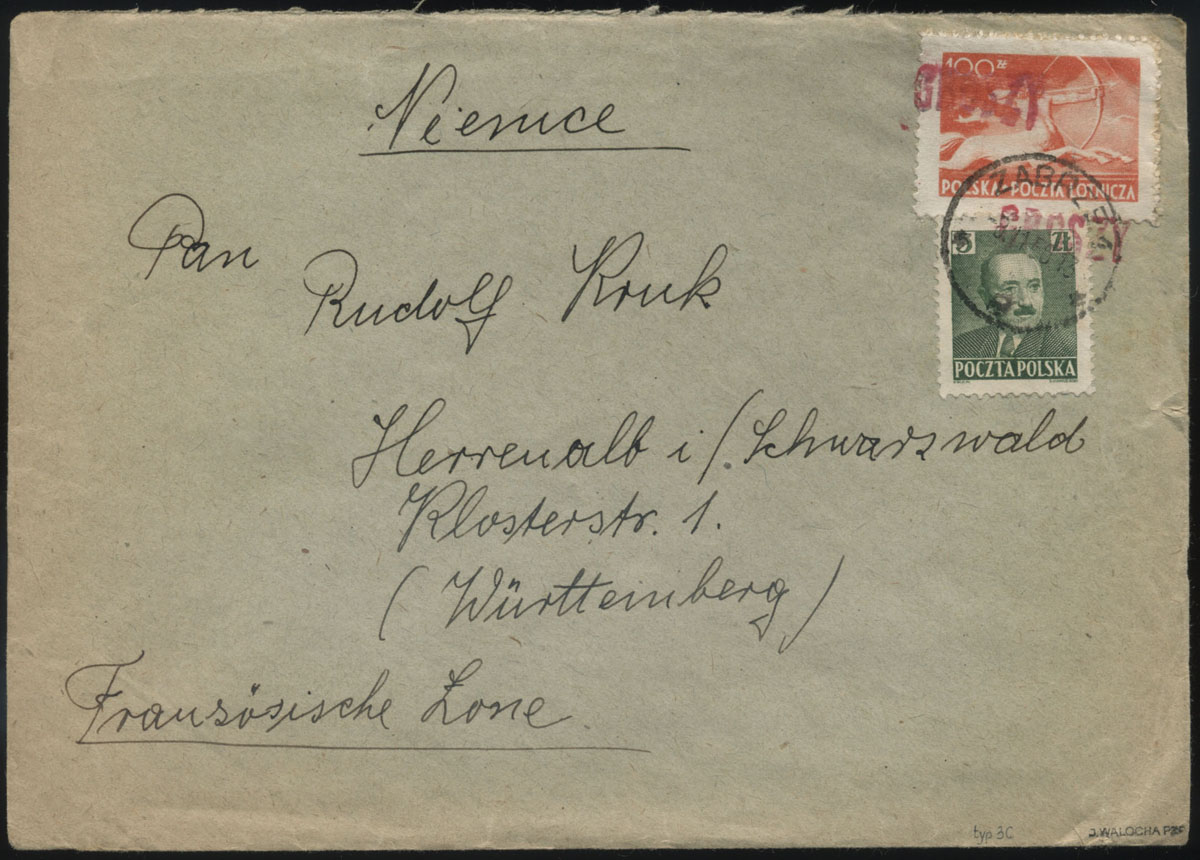 Niemce
100 ZŁ
GROSZY
POLSKA · POCZTA LOTNICZA
GROSZY
5 ZŁ
POCZTA POLSKA
Pan
Rudolf Kruk
Herrenalb i / Schwarzwald
Klosterstr. 1.
(Württemberg)
Französische Zone
typ 3C
J. WALOCHA PZF